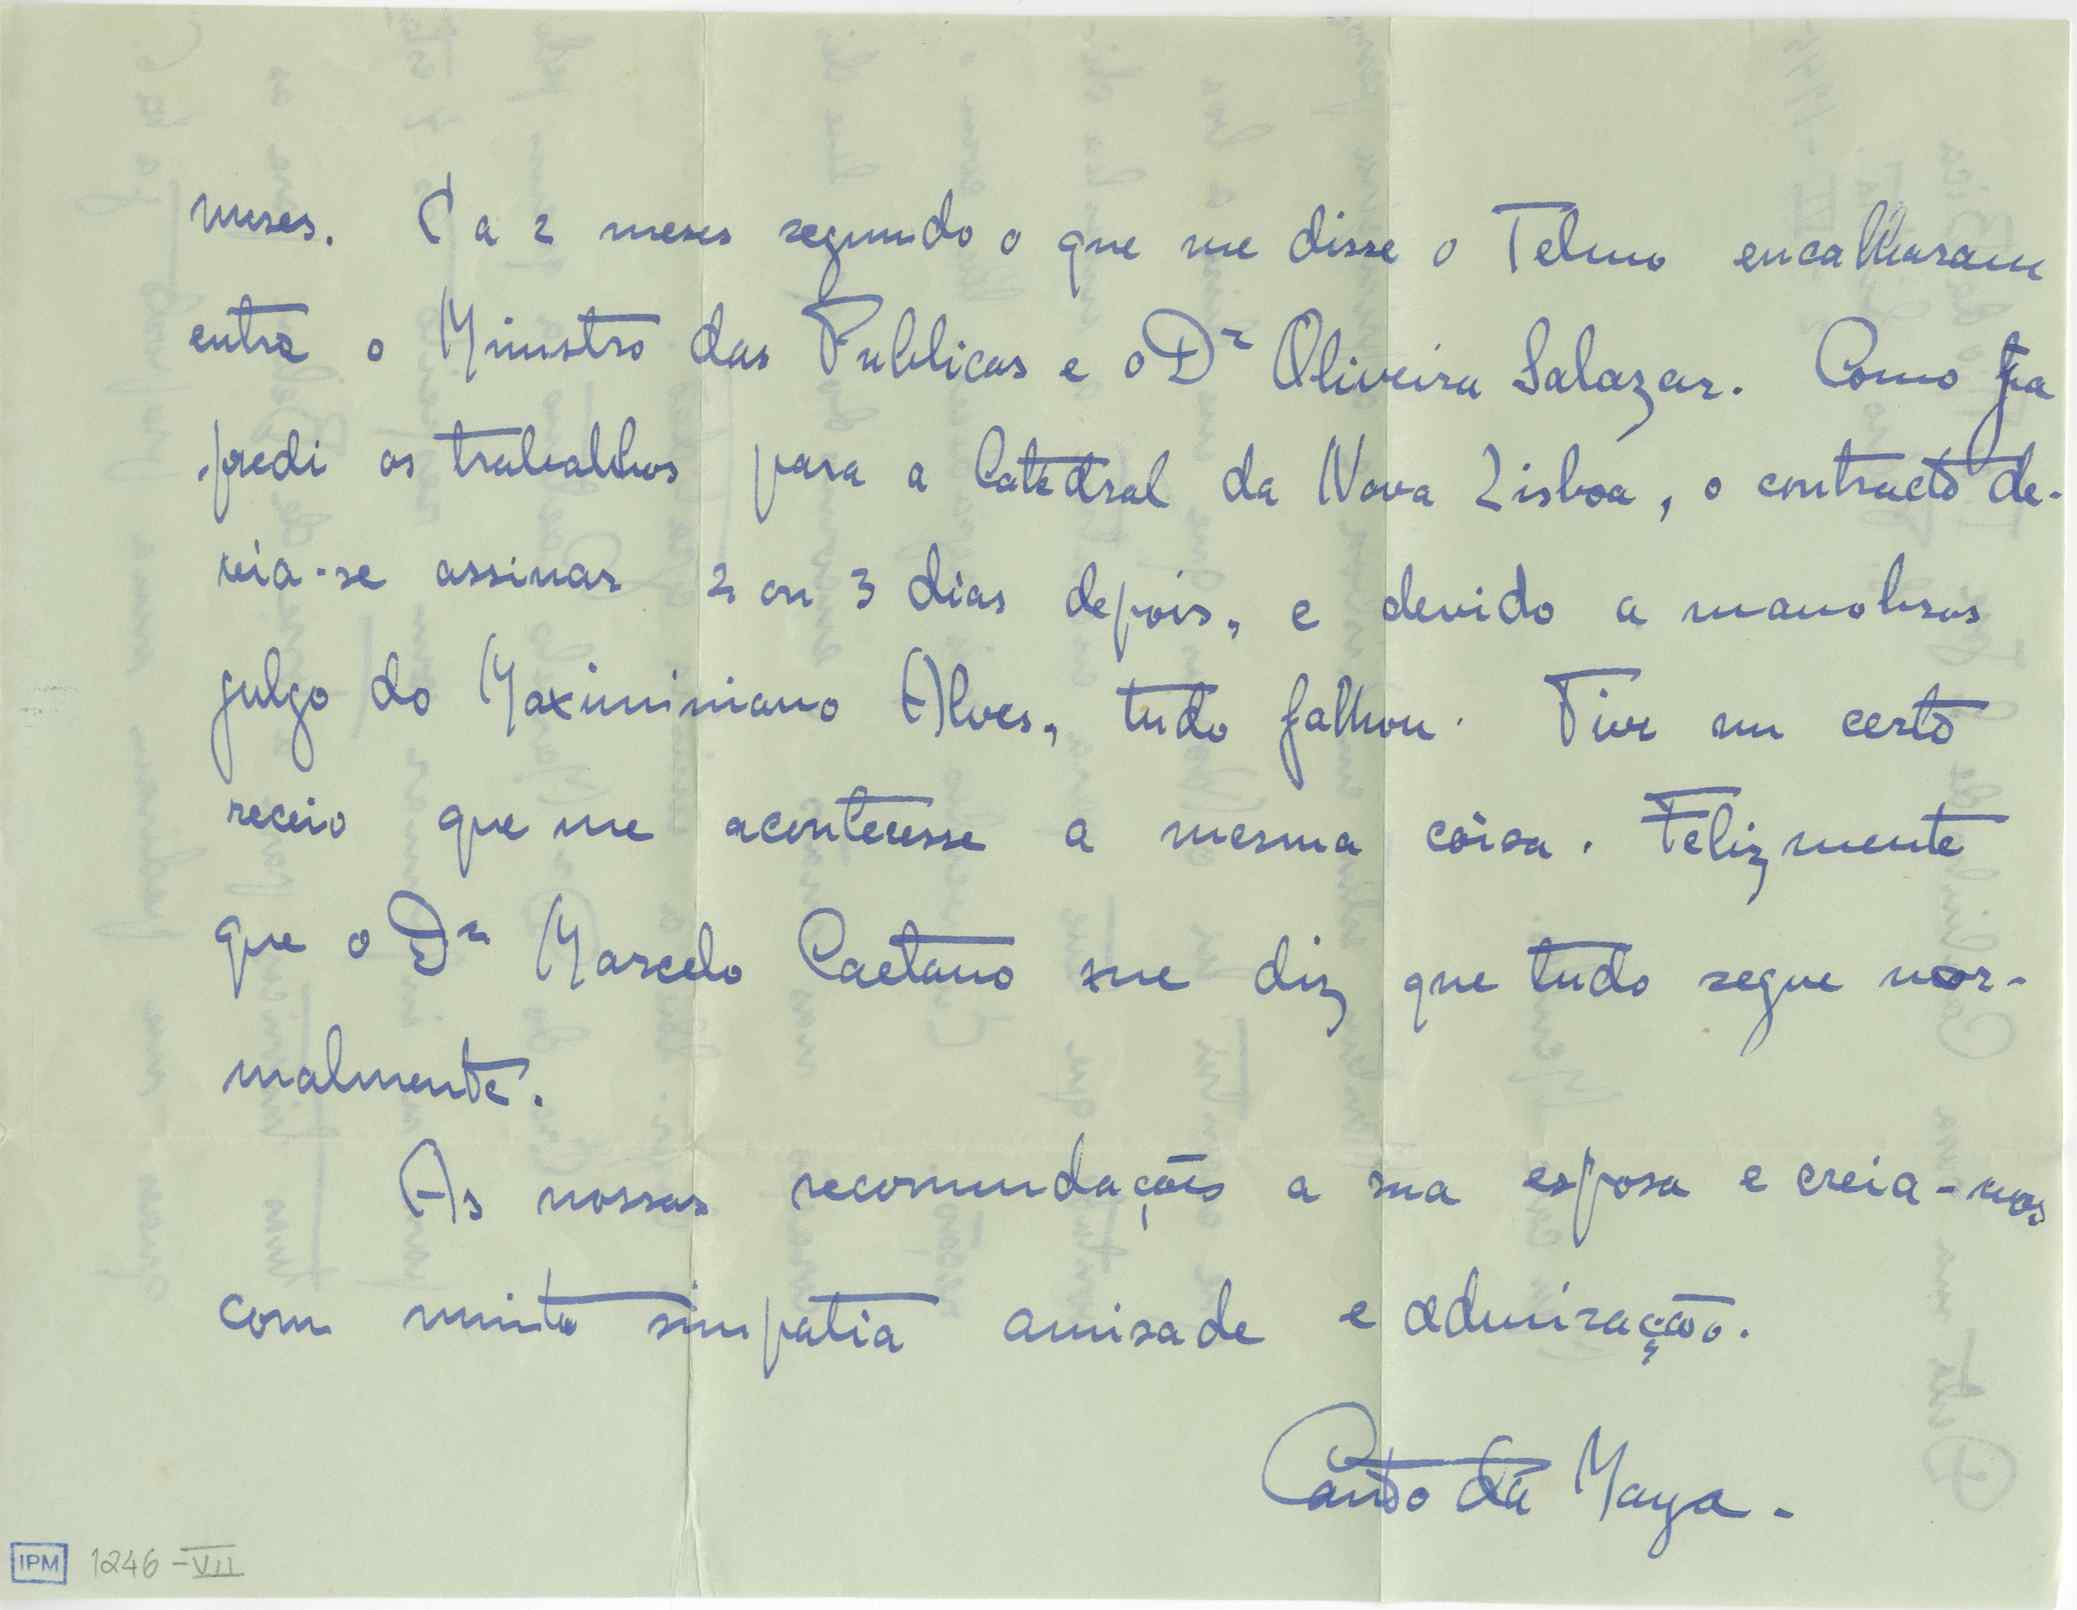 meses. Ca 2 meses segundo o que me disse o Telmo encalharam
entre o Ministro das Publicas e o Dr Oliveira Salazar. Como
pedi os trabalhos para a Catedral da Nova Lisboa, o contracto de-
via-se assinar 2 ou 3 dias depois, e devido a manobras
julgo do Maximiniano Alves, tudo falhou. Tive um certo
receio que me acontecesse a mesma côisa. Felizmente
que o Dr Marcelo Caetano me diz que tudo segue nor-
malmente.
As nossas recomendações a sua esposa e creia-nos
com muita simpatia amisade e admiração.
Canto da Maya.
IPM 1246-VII